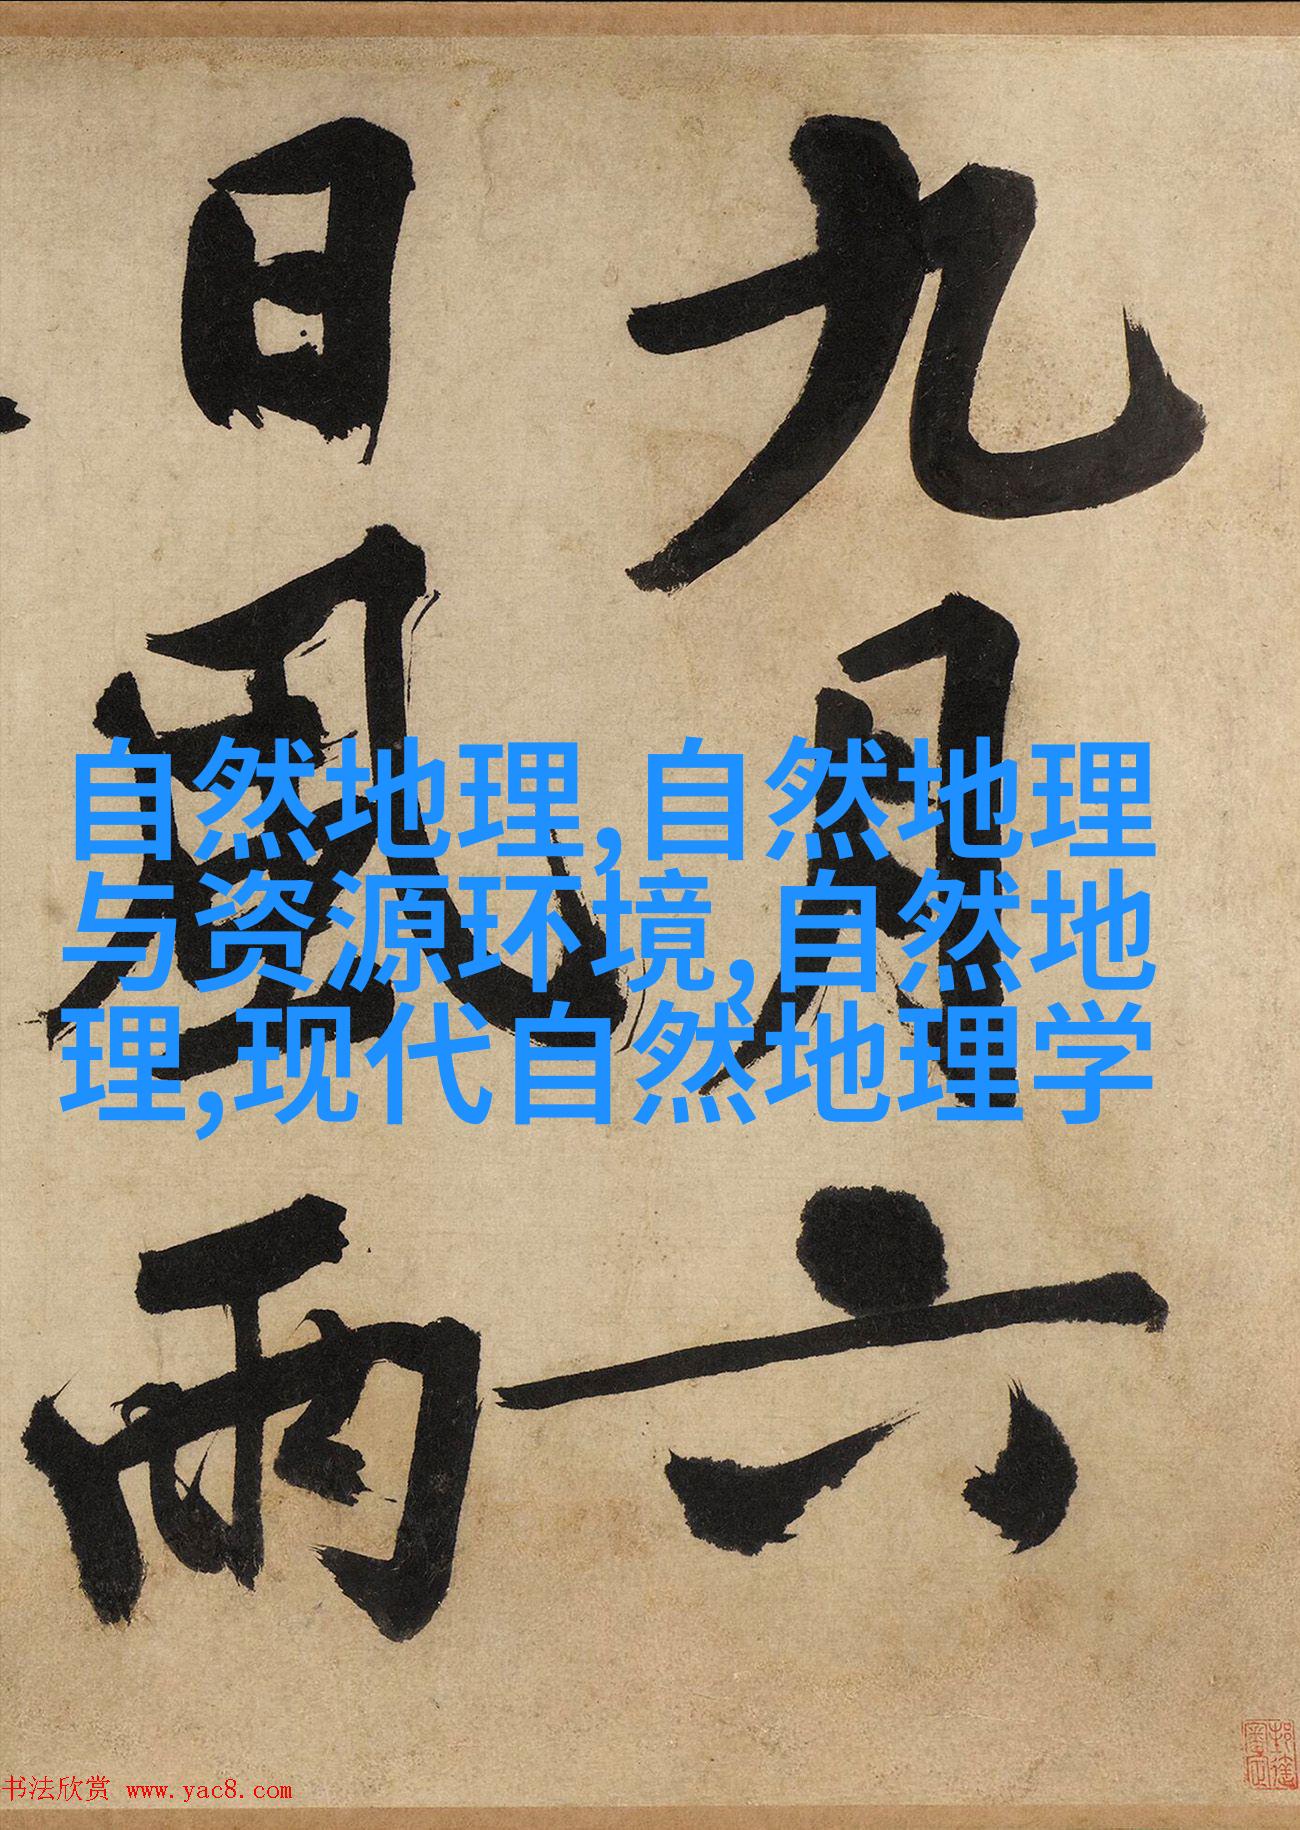 九月六
日風雨
自然地理,自然地理
与资源环境,自然地
理,现代自然地理学
书法欣赏 www.yac8.com